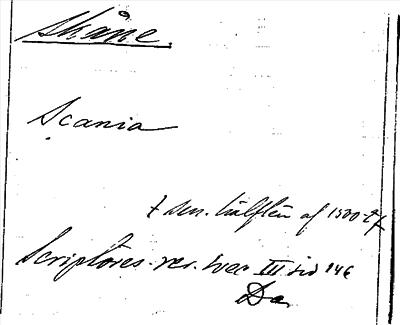 Skåne.
Scania
sen. hälften af 1500-t.
Scriptores. rer. svec III. sid 146